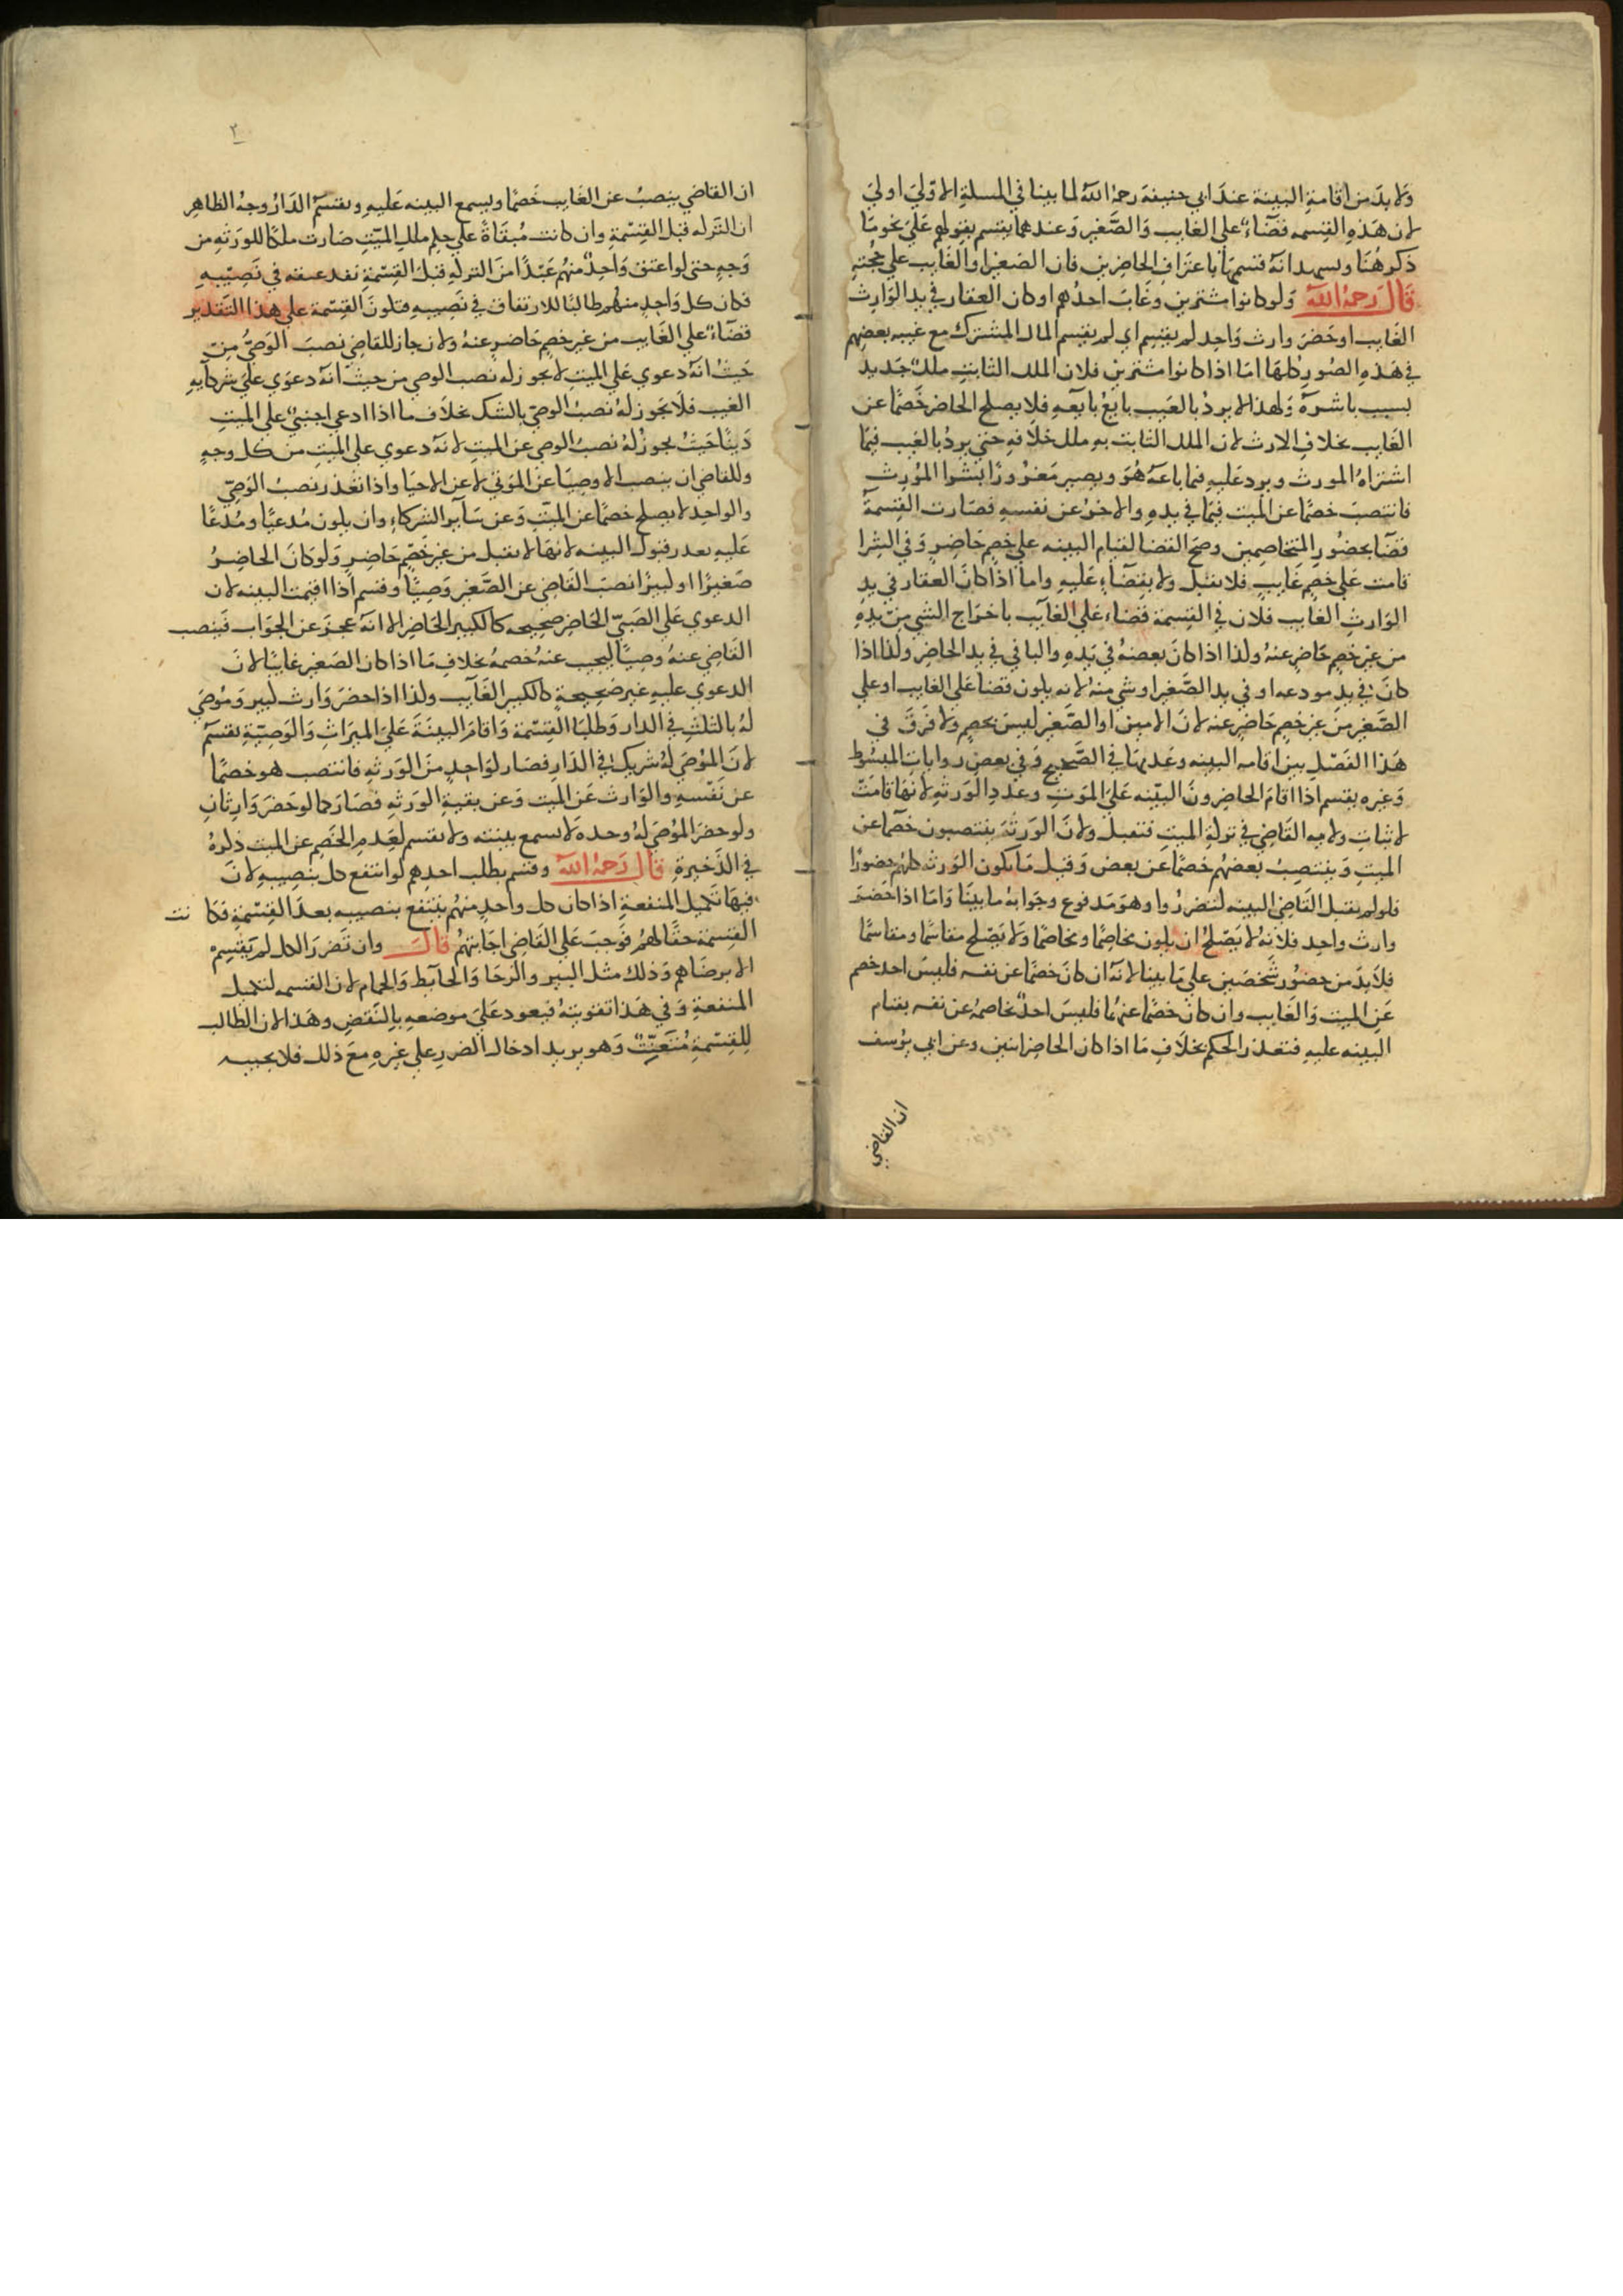 ولا بد من اقامة البينة عند ابي حنيفة رحمه الله لما بينا في المسلة الاولي اولي
لان هذه القسمه قضاء علي الغايب والصغير وعندهما يقسم بقولهم علي نحو ما
ذكر هنا ويسهد انه قسمها باعتراف الحاضرين فان الصغير او الغايب علي حجته
قال رحمه الله ولو كانوا مشترين وغاب احدهم او كان العقار في يد الوارث
الغايب او حضر وارث واحد لم يقسم اي لم يقسم المال المشترك مع غيبه بعضهم
في هذه الصور كلها اما اذا كانوا مشترين فلان الملك الثابت ملك جديد
بسبب باشره ولهذا لا يرد بالعيب بايع بايعه فلا يصلح الحاضر خصما عن
الغايب بخلاف الارث لان الملك الثابت به ملك خلافه حتي يرد بالعيب فيما
اشتراه المورث ويرد عليه فيما باعه هو ويصير مغرورا بشرا المورث
فانتصب خصما عن الميت فيما في يده والاخر عن نفسه فصارت القسمة
قضا بحضور المتخاصمين وصح القضا لقيام البينه علي خصم حاضر وفي الشرا
قامت علي خصم غايب فلا تقبل ولا يقضاء عليه واما اذا كان العقار في يد
الوارث الغايب فلان في القسمة قضاء علي الغايب باخراج الشي من يده
من غير خصم حاضر عنه ولذا اذا كان بعضه في يده والباقي في يد الحاضر ولذا اذا
كان في يد مودعه او في يد الصغير او شي منه لانه يكون قضا علي الغايب او علي
الصغير من غير خصم حاضر عنه لان الامين او الصغير ليس بخصم ولا فرق في
هذا الفصل بين اقامه البينه وعدمها في الصحيح وفي بعض روايات المبسوط
وغيره يقسم اذا اقام الحاضرون البينه علي الموت وعدد الورثه لانها قامت
لاثبات ولايه القاضي في تركة الميت فتقبل ولان الورثة ينتصبون خصما عن
الميت وينتصب بعضهم خصما عن بعض وقيل ما يكون الورثه كلهم حضورا
فلو لم يقبل القاضي البينه لتضرروا وهو مدفوع وجوابه ما بينا واما اذا حضر
وارث واحد فلانه لا يصلح ان يكون مخاصما ومخاصما ولا يصلح مقاسما ومقاسما
فلا بد من حضور شخصين علي ما بينا لانه ان كان خصما عن نفسه فليس احد خصم
عن الميت والغايب وان كان خصما عنهما فليس احد يخاصمه عن نفسه بقيام
البينه عليه فتعذر الحكم بخلاف ما اذا كان الحاضر اثنين وعن ابي يوسف
ان القاضي
٢
ان القاضي ينصب عن الغايب خصما ويسمع البينه عليه ويقسم الدار وجه الظاهر
ان التركه قبل القسمة وان كانت مبقاة علي حكم ملك الميت صارت ملكا للورثه من
وجه حتي لو اعتق واحد منهم عبدا من التركه قبل القسمة نفد عتقه في نصيبه
فكان كل واحد منهم طالبا للارتفاق في نصيبه فتكون القسمة علي هذا التقدير
قضاء علي الغايب من غير خصم حاضر عنه ولان جاز للقاضي نصب الوصي من
حيث انه دعوي علي الميت لا يجوز له نصب الوصي من حيث انه دعوي علي شركايه
الغيب فلا يجوز له نصب الوصي بالشك بخلاف ما اذا ادعي اجنبي علي الميت
دينا حيث يجوز له نصب الوصي عن الميت لانه دعوي علي الميت من كل وجه
وللقاضي ان ينصب الاوصيا عن الموتي لا عن الاحيا واذا تعذر نصب الوصي
والواحد لا يصلح خصما عن الميت وعن ساير الشركاء وان يكون مدعيا ومدعا
عليه تعدر قبول البينه لانها لا تقبل من غير خصم حاضر ولو كان الحاضر
صغيرا او كبيرا نصب القاضي عن الصغير وصيا وقسم اذا اقيمت البينه لان
الدعوي علي الصبي الحاضر صحيحه كالكبير الحاضر الا انه عجز عن الجواب فينصب
القاضي عنه وصيا ليجيب عنه خصمه بخلاف ما اذا كان الصغير غايبا لان
الدعوي عليه غير صحيحة كالكبير الغايب ولذا اذا حضر وارث كبير وموصي
له بالثلث في الدار وطلبا القسمة واقام البينة علي الميراث والوصية يقسم
لان الموصي له شريك في الدار فصار كواحد من الورثه فانتصب هو خصما
عن نفسه والوارث عن الميت وعن بقية الورثه فصار كما لو حضر وارثان
ولو حضر الموصي له وحده لا تسمع بينته ولا يقسم لعدم الخصم عن الميت ذكره
في الذخيرة قال رحمه الله وقسم بطلب احدهم لو انتفع كل بنصيبه لان
فيها تكميل المنفعة اذا كان كل واحد منهم ينتفع بنصيبه بعد القسمة فكانت
القسمة حقا لهم فوجب علي القاضي اجابتهم قال وان تضرر الكل لم يقسم
الا برضاهم وذلك مثل البير والرحا والحايط والحمام لان القسمه لتكميل
المنفعة وفي هذا تفويته فيعود علي موضعه بالنقض وهذا لان الطالب
للقسمة متعنت وهو يريد ادخال الضرر علي غيره مع ذلك فلا يجيبه